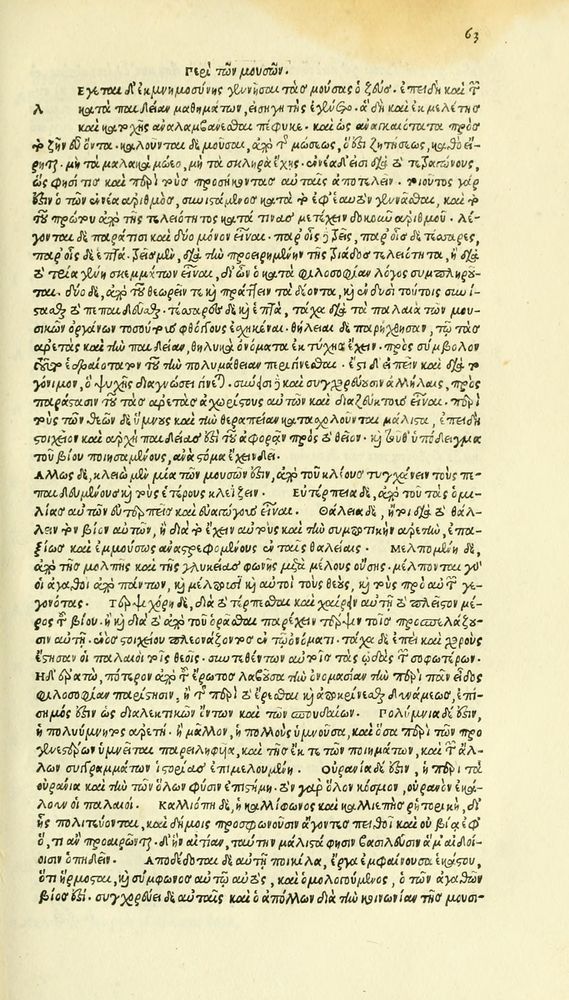 63
Περὶ τῶν μουσῶν.
Λέγεται δ' ἐκ μνημοσύνης γεννῆσαι τὰς μούσας ὁ ζεύς. ἐπειδὴ καὶ τῶν
κατὰ παιδείαν μαθημάτων, εἰσηγητὴς ἐγένετο. ἃ δὴ καὶ ἐκ μελέτης
καὶ κατοχῆς ἀναλαμβάνεσθαι πέφυκε. καὶ ὡς ἀναγκαιότατα πρὸς
τὸ ζῆν εὖ ὄντα. καλοῦνται δὲ μοῦσαι, ἀπὸ τῆς μώσεως, ὅ ἐστι ζητήσεως, καθὸ εἴ-
ρηται. μὴ τὰ μαλακὰ μώεο, μὴ τὰ σκληρὰ ἔχῃς. ἐννέα δ' εἰσὶ διὰ τὸ τετραγώνους,
ὥς φησί τις καὶ περιττοὺς προσήκοντας αὐταῖς ἀποτελεῖν. τοιοῦτος γάρ
ἐστιν ὁ τῶν ἐννέα ἀριθμὸς, συνιστάμενος κατὰ τὸ ἐφ' ἑαυτὸν γεννᾶσθαι, καὶ
τοῦ πρώτου ἀπὸ τῆς τελειότητος κατὰ τινὰς μετέχειν δοκοῦν ἀριθμοῦ. λέ-
γονται δὲ παρά τισι καὶ δύο μόνον εἶναι. παρ' οἷς δὲ τρεῖς, παρ' οἷς δὲ τέσσαρες,
παρ' οἷς δὲ ἑπτά. τρεῖς μὲν, διὰ τὴν προειρημένην τῆς τριάδος τελειότητα, ἢ διὰ
τὸ τρία γένη σκεμμάτων εἶναι, δι' ὧν ὁ κατὰ φιλοσοφίαν λόγος συμπληροῦ-
ται. δύο δὲ, ἀπὸ τοῦ θεωρεῖν τε καὶ πράττειν τὰ δέοντα, καὶ ἐν δυσὶ τούτοις συνί-
στασθαι τὸ πεπαιδεῦσθαι. τέσσαρες δὲ καὶ ἑπτὰ, τάχα διὰ τὸ τὰ παλαιὰ τῶν μου-
σικῶν ὀργάνων τοσούτους φθόγγους ἐσχηκέναι. θήλειαι δὲ παρήχθησαν, τῷ τὰς
ἀρετὰς καὶ τὴν παιδείαν, θηλυκὰ ὀνόματα ἐκ τύχης ἔχειν. πρὸς σύμβολον
τοῦ ἑδραιότατον τὴν πολυμάθειαν περιγίνεσθαι. ἔτι δ' εἰπεῖν καὶ διὰ τὸ
γόνιμον, ὃ ψυχῆς διαγνώσει γίνεται. σύνεισι δὲ καὶ συγχορεύουσιν ἀλλήλαις, πρὸς
παράστασιν τοῦ τὰς ἀρετὰς ἀχωρίστους αὐτῶν καὶ διαζευκτοὺς εἶναι. περὶ
τοὺς τῶν θεῶν δὲ ὕμνους καὶ τὴν θεραπείαν κατασχολοῦνται μάλιστα, ἐπειδὴ
στοιχεῖον καὶ ἀρχὴ παιδείας ἐστὶ τὸ ἀφορᾶν πρὸς τὸ θεῖον. καὶ τοῦθ' ὑπόδειγμα
τοῦ βίου ποιησαμένους, ἀνὰ στόμα ἔχειν δεῖ.
Ἄλλως δὲ, κλειὼ μὲν μία τῶν μουσῶν ἐστιν, ἀπὸ τοῦ κλέους τυγχάνειν τοὺς πε-
παιδευμένους καὶ τοὺς ἑτέρους κλεΐζειν. Εὐτέρπεια δὲ, ἀπὸ τοῦ τὰς ὁμι-
λίας αὐτῶν εὐτερπεῖς καὶ εὐαγώγους εἶναι. Θάλεια δὲ, ἤτοι διὰ τὸ θάλ-
λειν τὸν βίον αὐτῶν, ἢ διὰ τὸ ἔχειν αὐτοὺς καὶ τὴν συμποτικὴν ἀρετὴν, ἐπα-
ξίως καὶ ἐμμούσως ἀναστρεφομένους ἐν ταῖς θαλείαις. Μελπομένη δὲ,
ἀπὸ τῆς μολπῆς καὶ τῆς γλυκείας φωνῆς μετὰ μέλους οὔσης. μέλπονται γὰρ
οἱ ἀγαθοὶ ἀπὸ πάντων, καὶ μέλπουσι καὶ αὐτοὶ τοὺς θεοὺς, καὶ τοὺς πρὸ αὐτῶν γε-
γονότας. Τερψιχόρη δὲ, διὰ τὸ τέρπεσθαι καὶ χαίρειν αὐτῇ τὸ πλεῖστον μέ-
ρος τοῦ βίου. ἢ καὶ διὰ τὸ ἀπὸ τοῦ ὁρᾶσθαι παρέχειν τέρψιν τοῖς προσπελάζου-
σιν αὐτῇ. ἑνὸς στοιχείου πλεονάζοντος ἐν τῷ ὀνόματι. τάχα δὲ ἐπεὶ καὶ χοροὺς
ἔστησαν οἱ παλαιοὶ τοῖς θεοῖς. συντεθέντων αὐτοῖς τὰς ᾠδὰς τῶν σοφωτέρων.
Ἡ δ' ἐρατὼ, πότερον ἀπὸ τοῦ ἔρωτος λαβοῦσα τὴν ὀνομασίαν τὴν περὶ πᾶν εἶδος
φιλοσοφίαν παρίστησιν, ἢ τοῦ περὶ τὸ ἔρεσθαι καὶ ἀποκρίνεσθαι δυνάμεως, ἐπί-
σημός ἐστιν ὡς διαλεκτικῶν ὄντων καὶ τῶν σπουδαίων. Πολύμνια δέ ἐστιν,
ἡ πολυύμνητος ἀρετή. ἢ μᾶλλον, ἡ πολλοὺς ὑμνοῦσα, καὶ ὅσα περὶ τῶν προ
γενεστέρων ὑμνεῖται παρειληφυῖα, καὶ τῆς ἔκ τε τῶν ποιημάτων, καὶ τῶν ἄλ-
λων συγγραμμάτων ἱστορίας ἐπιμελουμένη. Οὐρανία δέ ἐστιν, ἡ περὶ τὰ
οὐράνια καὶ τὴν τῶν ὅλων φύσιν ἐπιστήμη. τὸν γὰρ ὅλον κόσμον, οὐρανὸν ἐκά-
λουν οἱ παλαιοί. Καλλιόπη δὲ, ἡ καλλίφωνος καὶ καλλιεπὴς ῥητορικὴ, δι'
ἧς πολιτεύονται, καὶ δήμοις προσφωνοῦσιν ἄγοντες πειθοῖ καὶ οὐ βίᾳ ἐφ'
ὅ, τι ἂν προαιρῶνται. δι' ἣν αἰτίαν, ταύτην μάλιστά φησιν βασιλεῦσιν ἅμ' αἰδοί-
οισιν ὀπηδεῖν. Ἀποδέδοται δὲ αὐτῇ ποικίλα, ἔργα ἐμφαίνουσα ἑκάστου,
ὅτι ἥρμοσται, καὶ σύμφωνος αὐτῷ αὐτὸς, καὶ ὁμολογούμενος, ὁ τῶν ἀγαθῶν
βίος ἐστί. συγχορεύει δὲ αὐταῖς καὶ ὁ ἀπόλλων διὰ τὴν κοινωνίαν τῆς μουσι-